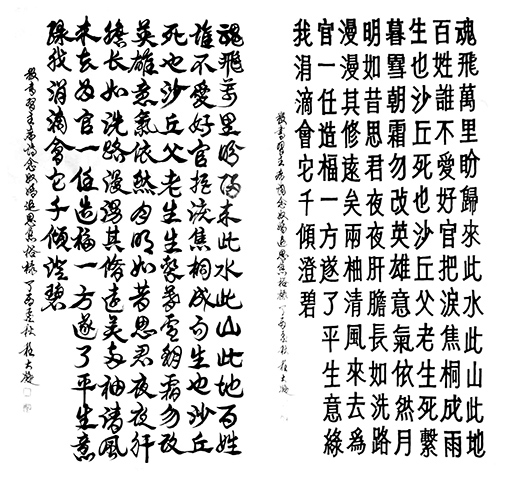 魂飛萬里盼歸來此水此山此地
百姓誰不愛好官把淚焦桐成雨
生也沙丘死也沙丘父老生死繫
暮雪朝霜勿改英雄意氣依然月
明如昔思君夜夜肝膽長如洗路
漫漫其修遠矣兩袖清風來去為
官一任造福一方遂了平生意綠
我涓滴會它千傾澄碧
敬書習主席詞念奴嬌追思焦裕祿
魂飛萬里盼歸來此水此山此地百姓
誰不愛好官把淚焦桐成雨生也沙丘
死也沙丘父老生死繫暮雪朝霜勿改
英雄意氣依然月明如昔思君夜夜肝
膽長如洗路漫漫其修遠矣兩袖清風
來去為官一任造福一方遂了平生意
綠我涓滴會它千傾澄碧
敬書習主席詞念奴嬌追思焦裕祿